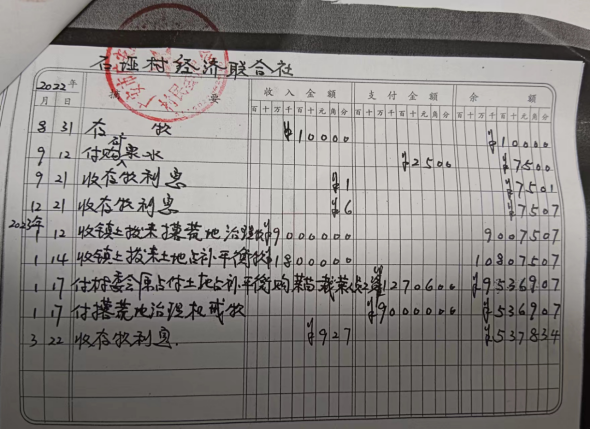 石 村经济联合社
2022年 摘 要 收入金额 支付金额 余 额
月 日 百十万千百十元角分 百十万千百十元角分 百十万千百十元角分
8 31 存 款 ¥10000 ¥10000
9 12 付购泉水 ¥2500 ¥7500
9 21 收存款利息 ¥1 ¥7501
12 21 收存款利息 ¥6 ¥7507
2023年
1 12 收镇上拨来撂荒地治理款 ¥9000000 9007507
1 14 收镇上拨来土地占补平衡款 ¥1800000 10807507
1 17 付村委会原占付土地占补平衡购菜苗栽菜 资 ¥1270600 ¥9536907
1 17 付撂荒地治理机 款 ¥9000000 ¥536907
3 22 收存款利息. ¥927 ¥537834